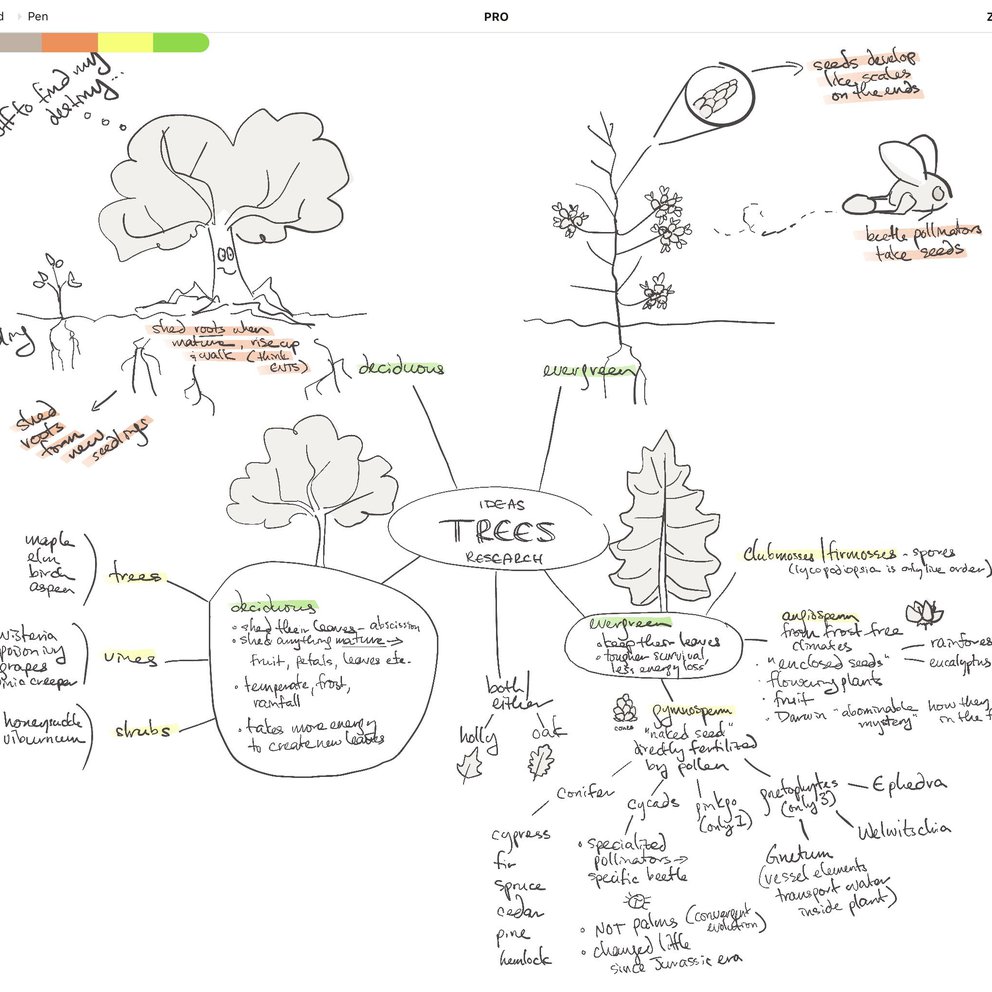 Pen
PRO
off to find my
destiny...
seeds develop
like scales
on the ends
beetle pollinators
take seeds
shed roots when
mature, rise up
& walk (think
ENTS)
shed
roots
form
new
seedlings
deciduous
evergreen
IDEAS
TREES
RESEARCH
maple
elm
birch
aspen
trees
wisteria
poison ivy
grapes
creeper
vines
honeysuckle
viburnum
shrubs
deciduous
• shed their leaves - abscission
• shed anything mature →
fruit, petals, leaves etc.
• temperate, frost,
rainfall
• takes more energy
to create new leaves
both/
either
holly
oak
evergreen
• keep their leaves
• tougher survival
less energy loss
clubmosses/firmosses - spores
(lycopodiopsia is only live order)
angiosperm
from frost free
climates
rainfores
eucalyptus
• "enclosed seeds"
• flowering plants
• fruit
• Darwin "abominable
mystery"
how they
in the f
cones
gymnosperm
"naked seed"
directly fertilized
by pollen
conifer
cypress
fir
spruce
cedar
pine
hemlock
cycads
• specialized
pollinators →
specific beetle
• NOT palms (convergent
evolution)
• changed little
since Jurassic era
ginkgo
(only 1)
gnetophytes
(only 3)
Ephedra
Welwitschia
Gnetum
(vessel elements
transport water
inside plant)